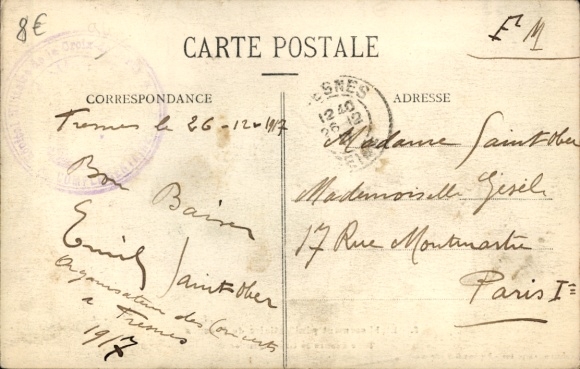 8€
F M
CARTE POSTALE
CORRESPONDANCE
ADRESSE
Fresnes le 26-12-1917
Bon Baiser
Emile Saint Ober
Organisateur des Concerts
a Fresnes
1917
ESNES
12 40
26-12
Madame Saint Ober
Mademoiselle Gisèle
17 Rue Montmartre
Paris Ie